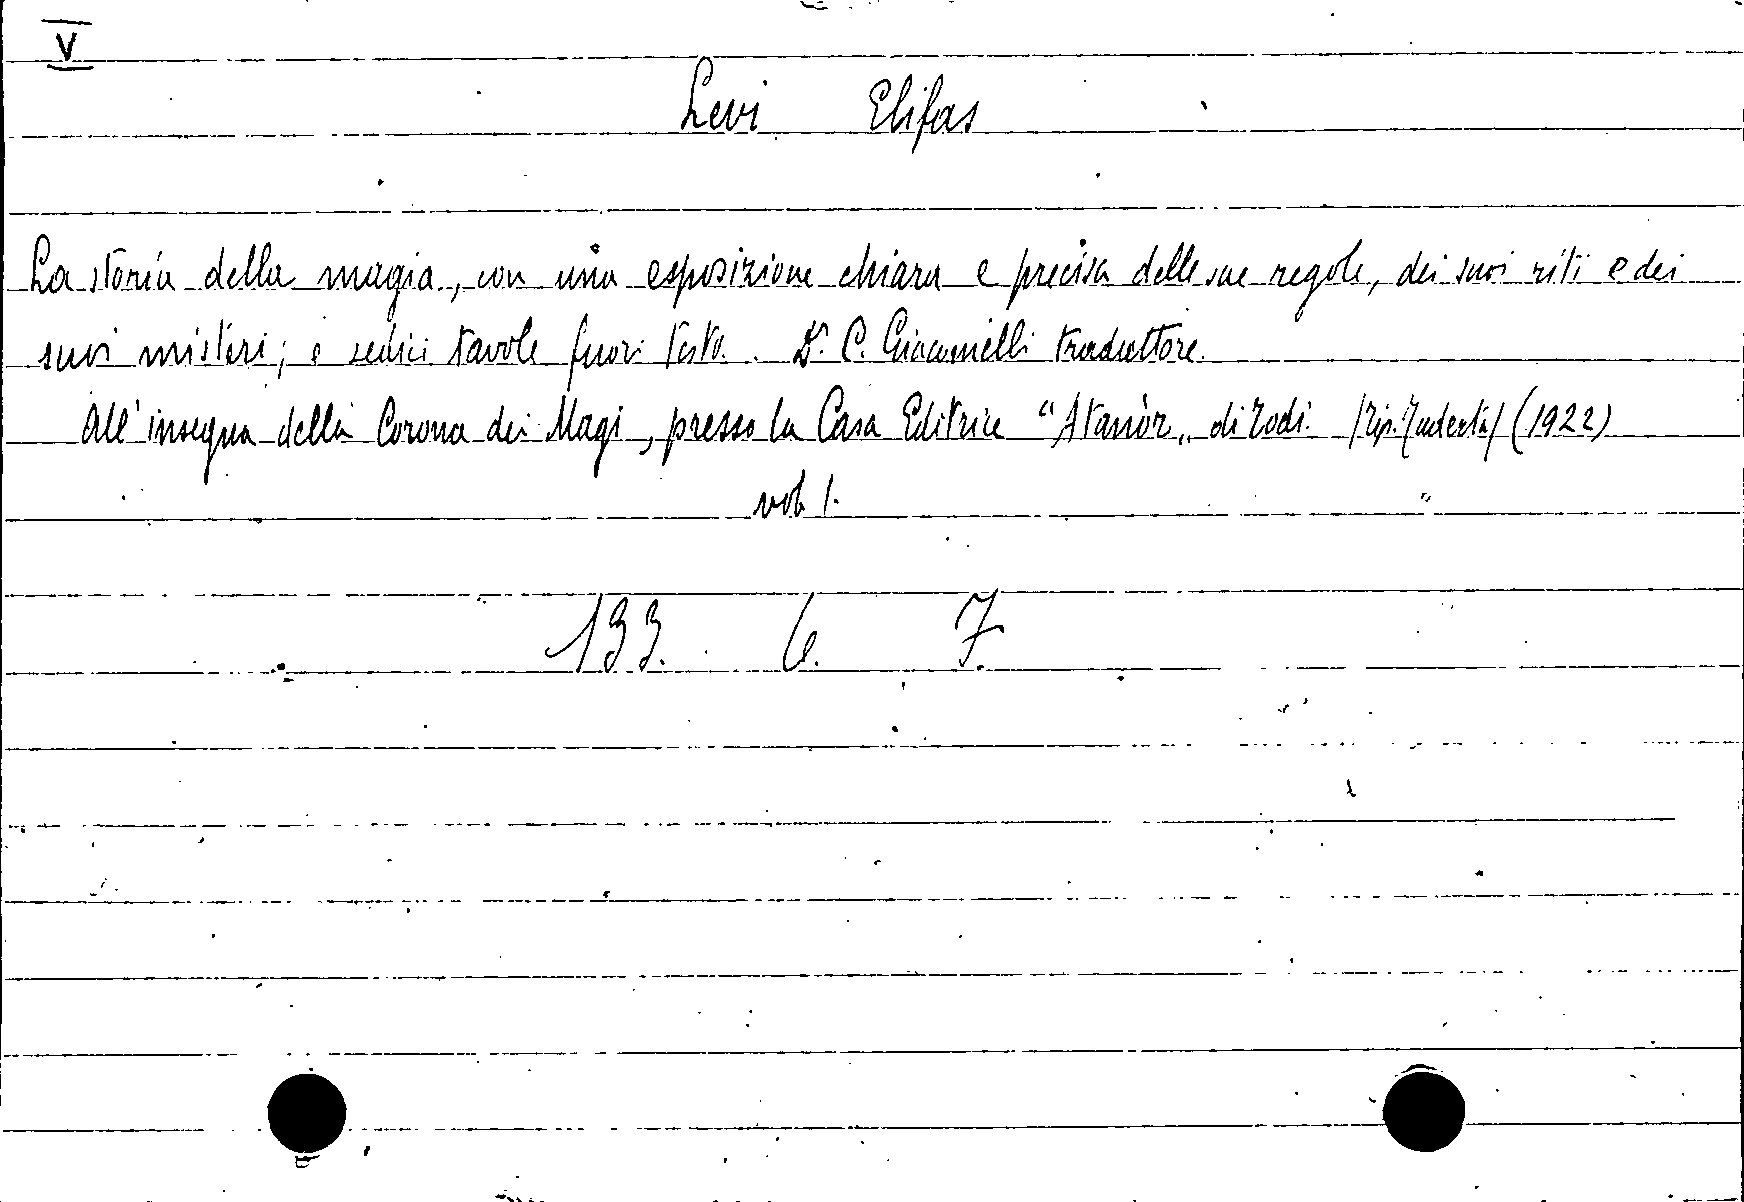 V
Levi Elifas
La storia della magia, con una esposizione chiara e precisa delle sue regole, dei suoi riti e dei
suoi misteri; e sedici tavole fuori testo. Dr. C. Giacomelli traduttore.
All'insegna della Corona dei Magi, presso la Casa Editrice "Atanòr" di Todi. /Tip. / (1922)
vol. 1.
133. 6. 7.